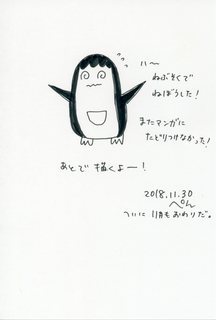 ハ～
ねぶそくで
ねぼうした!
またマンガに
たどりつけなかった!
あとで描くよー!
2018.11.30
ぺん
ついに11月もおわりだ。